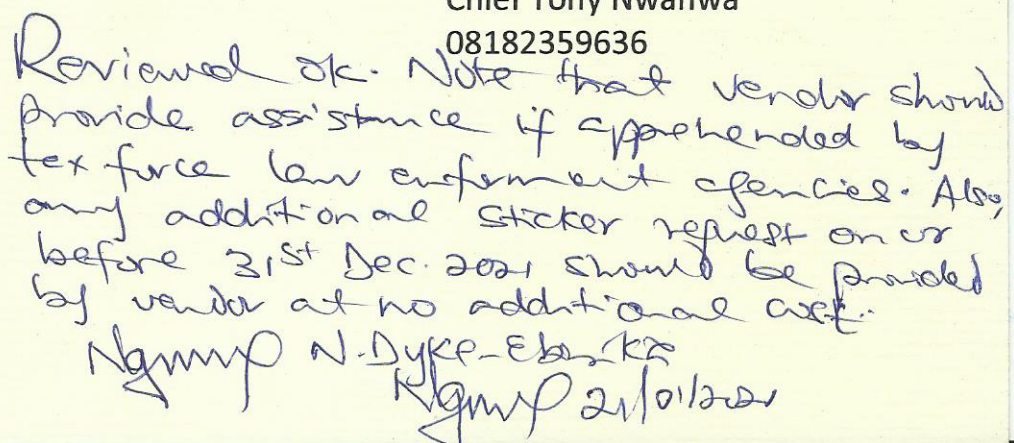 Chief Tony Nwanwa
08182359636
Reviewed ok. Note that vendor should
provide assistance if apprehended by
tax force law enforcement agencies. Also,
any additional sticker request on or
before 31st Dec. 2021 should be provided
by vendor at no additional cost.
N. Dyke-
21/01/2021